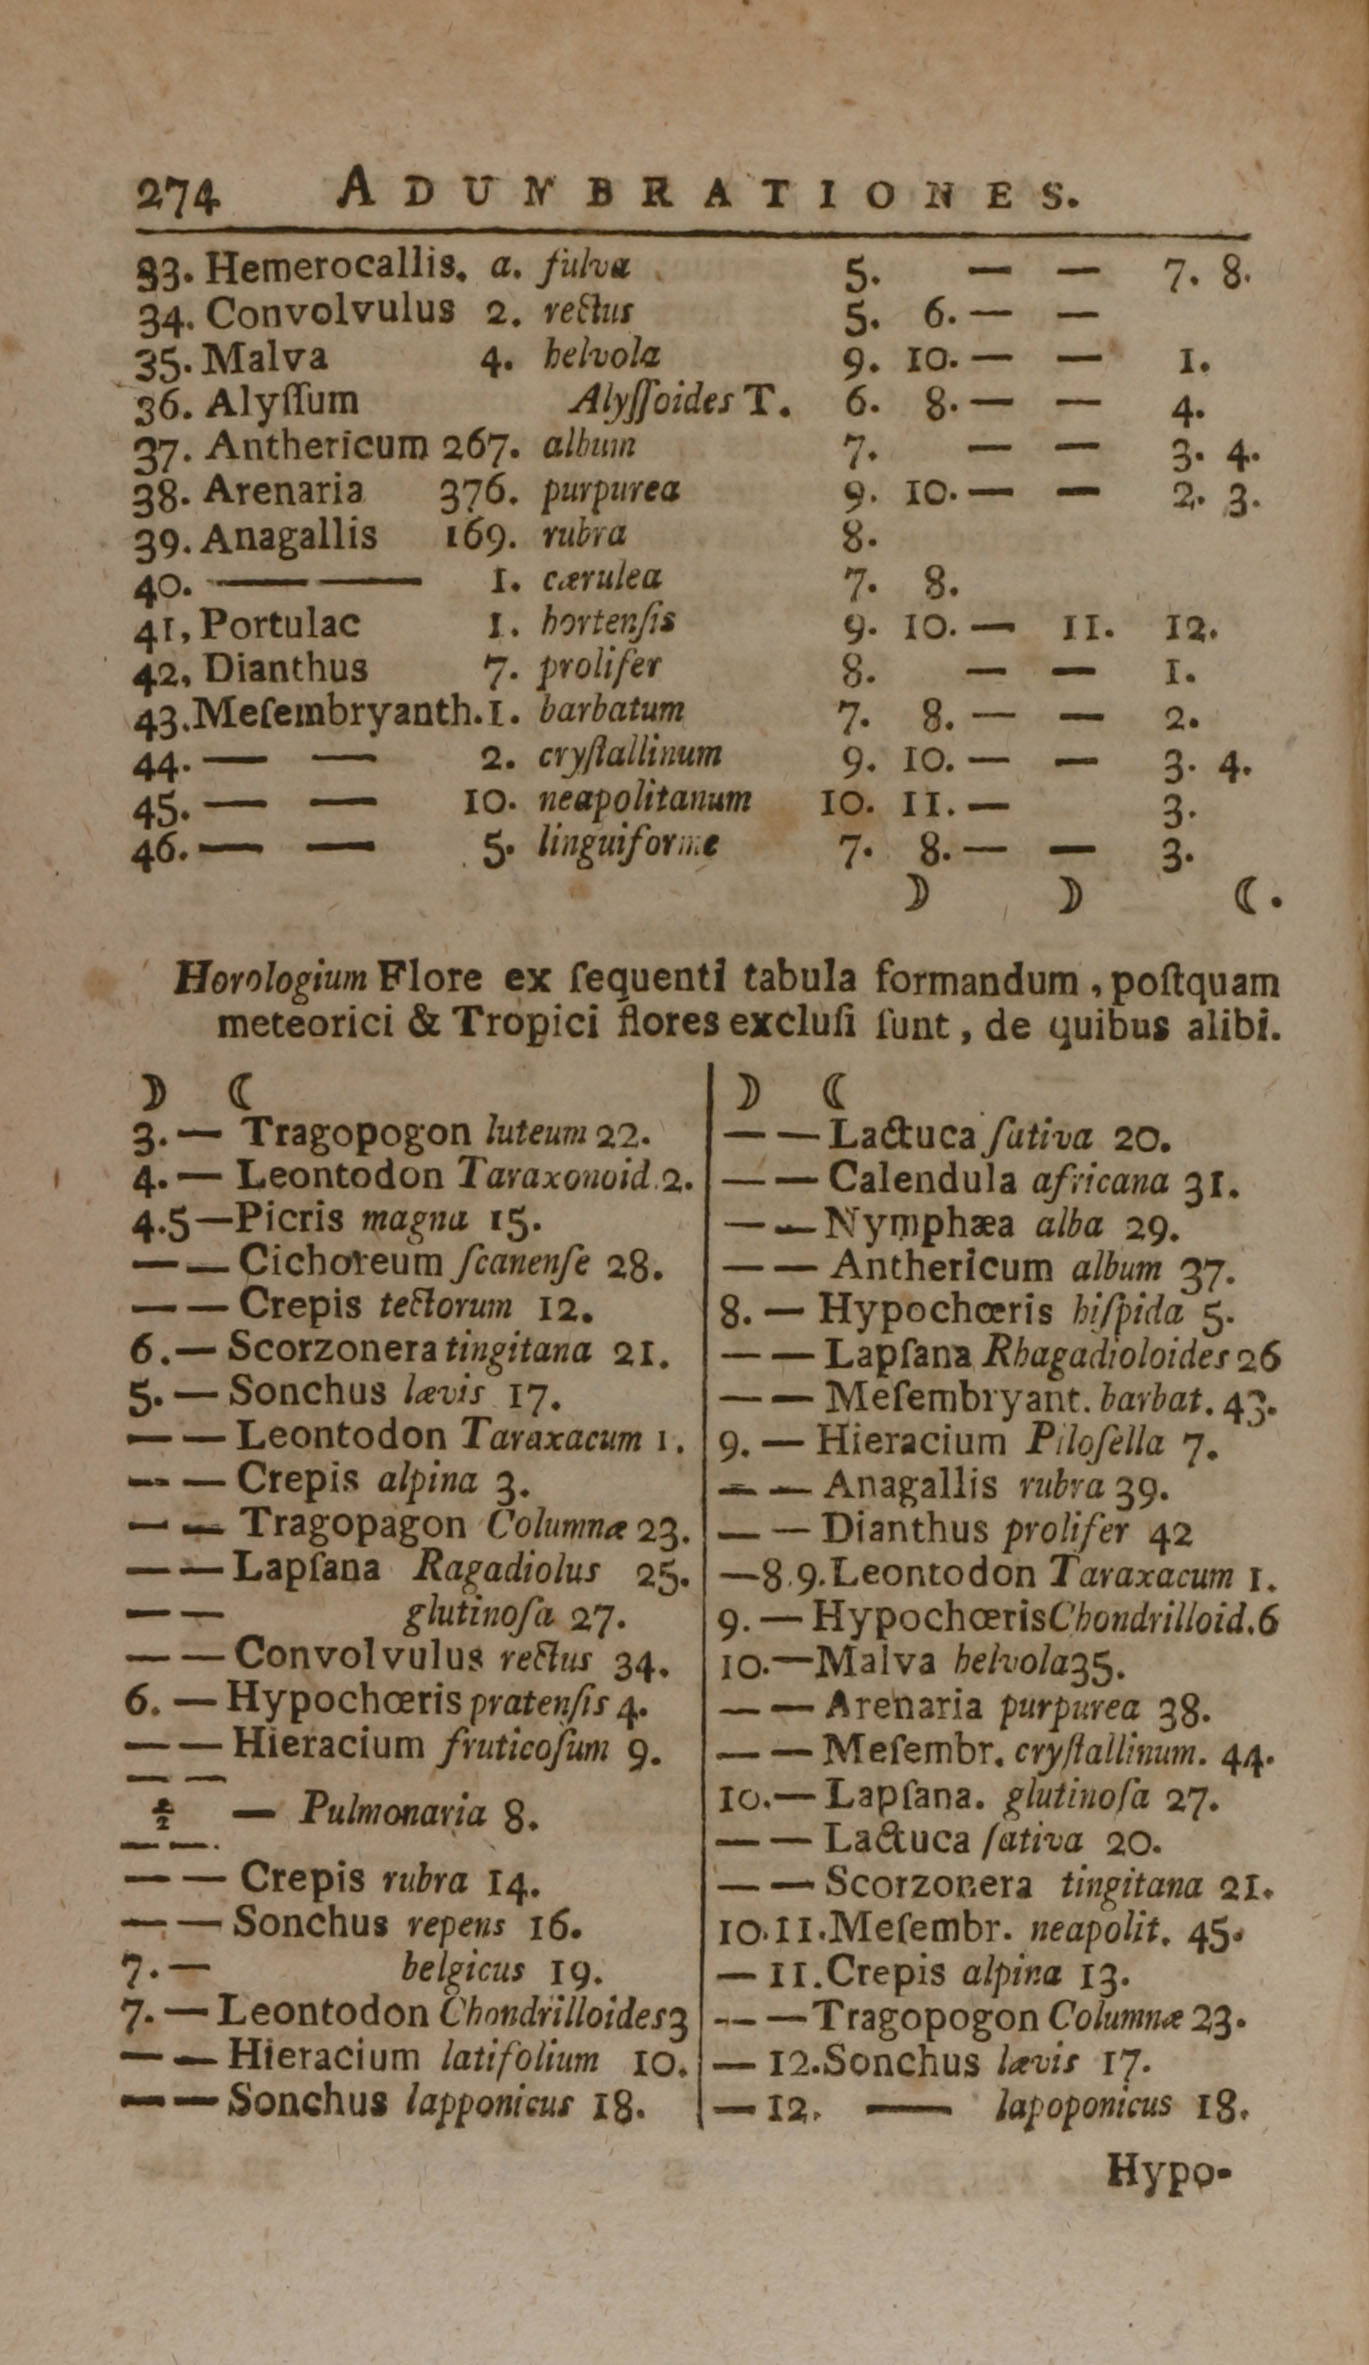 274 ADUMBRATIONES.
33. Hemerocallis. a. fulva 5. — — 7. 8.
34. Convolvulus 2. rectus 5. 6. — —
35. Malva 4. helvola 9. 10. — — 1.
36. Alyſſum Alyſſoides T. 6. 8. — — 4.
37. Anthericum 267. album 7. — — 3. 4.
38. Arenaria 376. purpurea 9. 10. — — 2. 3.
39. Anagallis 169. rubra 8.
40. — — 1. cærulea 7. 8.
41, Portulac 1. hortenſis 9. 10. — 11. 12.
42, Dianthus 7. prolifer 8. — — 1.
43. Meſembryanth. 1. barbatum 7. 8. — — 2.
44. — — 2. cryſtallinum 9. 10. — — 3. 4.
45. — — 10. neapolitanum 10. 11. — 3.
46. — — 5. linguiforme 7. 8. — — 3.
☽ ☽ ☾.
Horologium Flore ex ſequenti tabula formandum, poſtquam
meteorici & Tropici flores excluſi ſunt, de quibus alibi.
☽ ☾
3. — Tragopogon luteum 22.
4. — Leontodon Taraxonoid. 2.
4.5 — Picris magna 15.
— — Cichoreum ſcanenſe 28.
— — Crepis tectorum 12.
6. — Scorzonera tingitana 21.
5. — Sonchus lævis 17.
— — Leontodon Taraxacum 1.
— — Crepis alpina 3.
— — Tragopagon Columnæ 23.
— — Lapſana Ragadiolus 25.
— — glutinoſa 27.
— — Convolvulus rectus 34.
6. — Hypochœris pratenſis 4.
— — Hieracium fruticoſum 9.
— —
— Pulmonaria 8.
— —.
— — Crepis rubra 14.
— — Sonchus repens 16.
7. — belgicus 19.
7. — Leontodon Chondrilloides 3
— — Hieracium latifolium 10.
— — Sonchus lapponicus 18.
☽ ☾
— — Lactuca ſativa 20.
— — Calendula africana 31.
— — Nymphæa alba 29.
— — Anthericum album 37.
8. — Hypochœris hiſpida 5.
— — Lapſana Rhagadioloides 26
— — Meſembryant. barbat. 43.
9. — Hieracium Piloſella 7.
— — Anagallis rubra 39.
— — Dianthus prolifer 42
— 8.9. Leontodon Taraxacum 1.
9. — Hypochœris Chondrilloid. 6
10. — Malva helvola 35.
— — Arenaria purpurea 38.
— — Meſembr. cryſtallinum. 44.
10. — Lapſana. glutinoſa 27.
— — Lactuca ſativa 20.
— — Scorzonera tingitana 21.
10.11. Meſembr. neapolit. 45.
— 11. Crepis alpina 13.
— — Tragopogon Columnæ 23.
— 12. Sonchus lævis 17.
— 12. — lapoponicus 18.
Hypo-